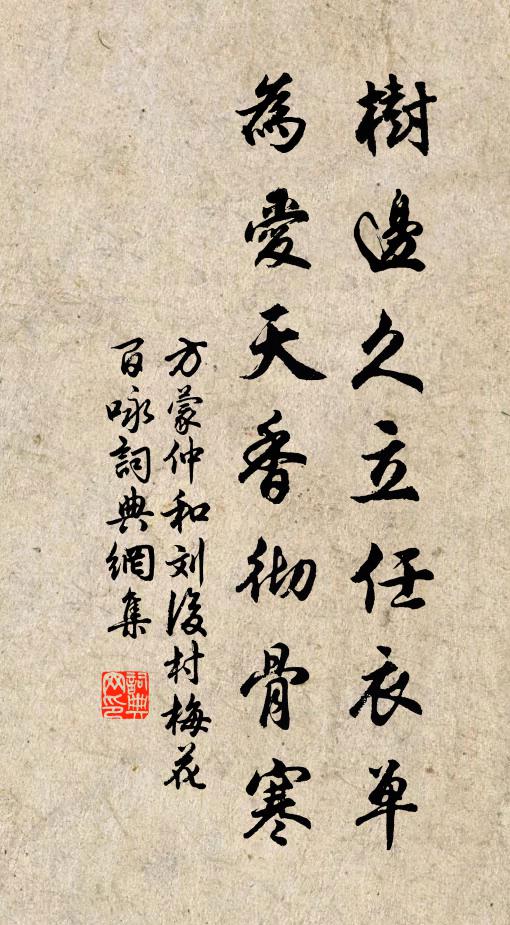 樹邊久立任衣單
為愛天香彻骨寒
方蒙仲和刘後村梅花
百咏詞典網集
詞典
网印